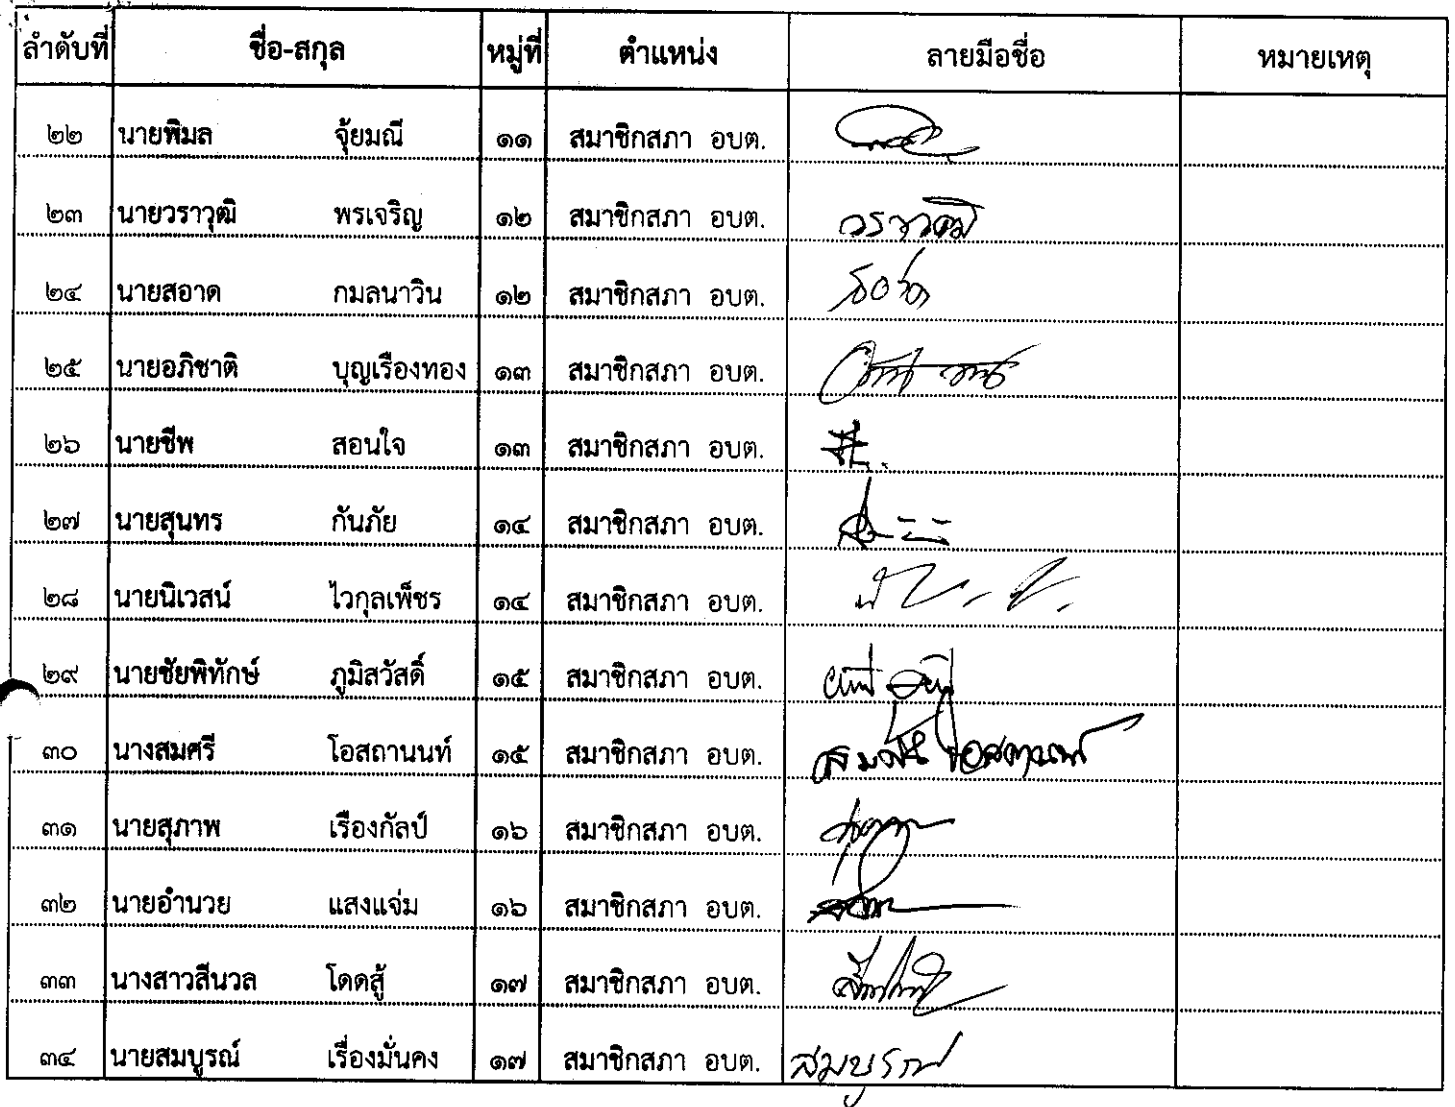 ลำดับที่ ชื่อ-สกุล หมู่ที่ ตำแหน่ง ลายมือชื่อ หมายเหตุ
๒๒ นายพิมล จุ้ยมณี ๑๑ สมาชิกสภา อบต.
๒๓ นายวราวุฒิ พรเจริญ ๑๒ สมาชิกสภา อบต. วราวุฒิ
๒๔ นายสอาด กมลนาวิน ๑๒ สมาชิกสภา อบต. สอาด
๒๕ นายอภิชาติ บุญเรืองทอง ๑๓ สมาชิกสภา อบต.
๒๖ นายชีพ สอนใจ ๑๓ สมาชิกสภา อบต.
๒๗ นายสุนทร กันภัย ๑๔ สมาชิกสภา อบต.
๒๘ นายนิเวสน์ ไวกุลเพ็ชร ๑๔ สมาชิกสภา อบต.
๒๙ นายชัยพิทักษ์ ภูมิสวัสดิ์ ๑๕ สมาชิกสภา อบต.
๓๐ นางสมศรี โอสถานนท์ ๑๕ สมาชิกสภา อบต. สมศรี โอสถานนท์
๓๑ นายสุภาพ เรืองกัลป์ ๑๖ สมาชิกสภา อบต.
๓๒ นายอำนวย แสงแจ่ม ๑๖ สมาชิกสภา อบต.
๓๓ นางสาวสีนวล โดดสู้ ๑๗ สมาชิกสภา อบต.
๓๔ นายสมบูรณ์ เรื่องมั่นคง ๑๗ สมาชิกสภา อบต. สมบูรณ์